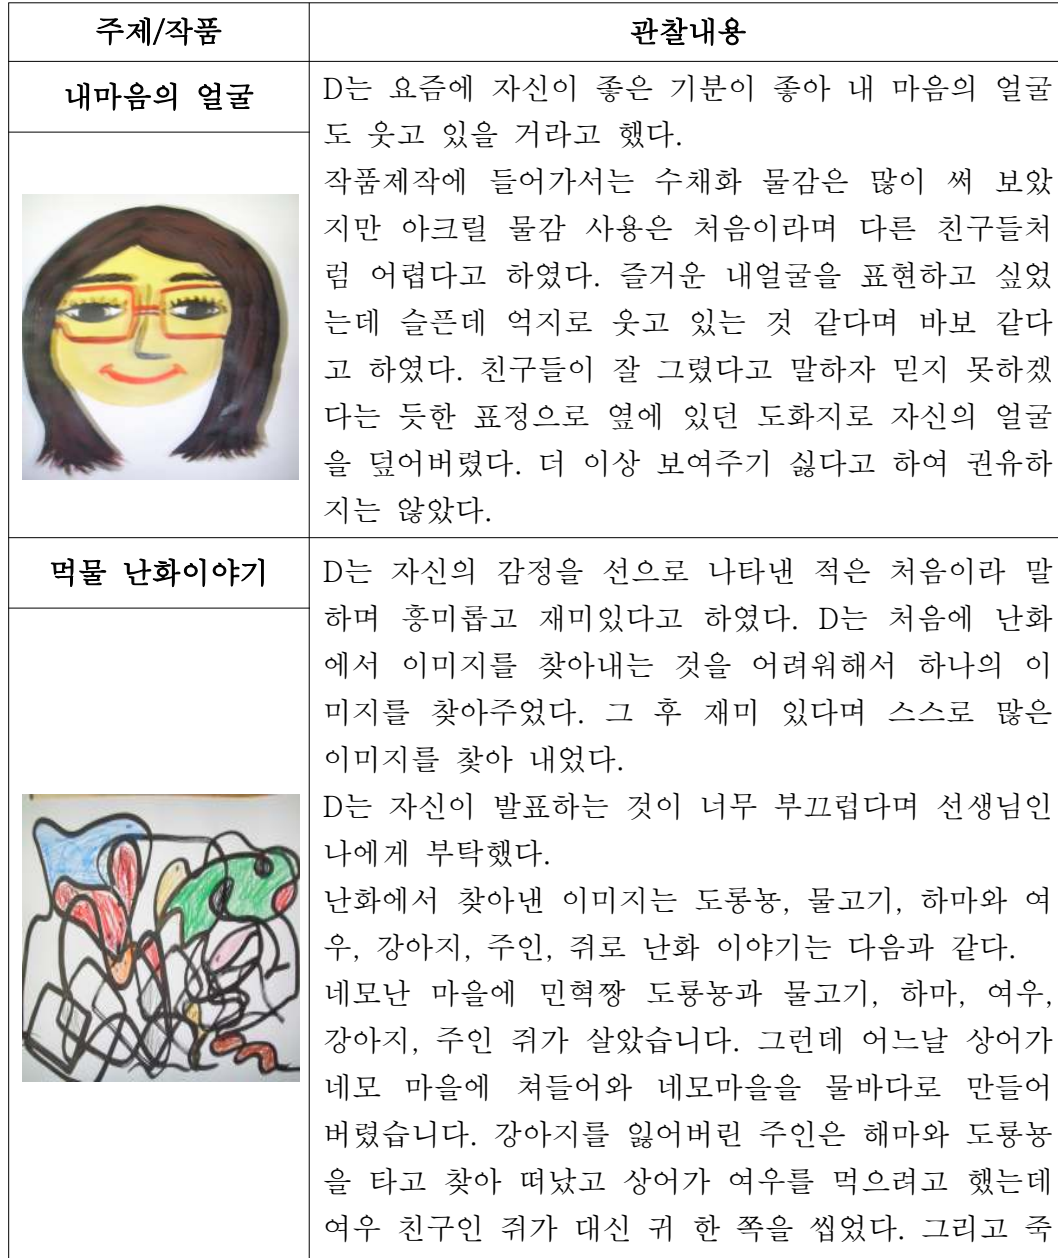 주제/작품
관찰내용
내마음의 얼굴
D는 요즘에 자신이 좋은 기분이 좋아 내 마음의 얼굴
도 웃고 있을 거라고 했다.
작품제작에 들어가서는 수채화 물감은 많이 써 보았
지만 아크릴 물감 사용은 처음이라며 다른 친구들처
럼 어렵다고 하였다. 즐거운 내얼굴을 표현하고 싶었
는데 슬픈데 억지로 웃고 있는 것 같다며 바보 같다
고 하였다. 친구들이 잘 그렸다고 말하자 믿지 못하겠
다는 듯한 표정으로 옆에 있던 도화지로 자신의 얼굴
을 덮어버렸다. 더 이상 보여주기 싫다고 하여 권유하
지는 않았다.
먹물 난화이야기
D는 자신의 감정을 선으로 나타낸 적은 처음이라 말
하며 흥미롭고 재미있다고 하였다. D는 처음에 난화
에서 이미지를 찾아내는 것을 어려워해서 하나의 이
미지를 찾아주었다. 그 후 재미 있다며 스스로 많은
이미지를 찾아 내었다.
D는 자신이 발표하는 것이 너무 부끄럽다며 선생님인
나에게 부탁했다.
난화에서 찾아낸 이미지는 도롱뇽, 물고기, 하마와 여
우, 강아지, 주인, 쥐로 난화 이야기는 다음과 같다.
네모난 마을에 민혁짱 도룡뇽과 물고기, 하마, 여우,
강아지, 주인 쥐가 살았습니다. 그런데 어느날 상어가
네모 마을에 쳐들어와 네모마을을 물바다로 만들어
버렸습니다. 강아지를 잃어버린 주인은 해마와 도룡뇽
을 타고 찾아 떠났고 상어가 여우를 먹으려고 했는데
여우 친구인 쥐가 대신 귀 한 쪽을 씹었다. 그리고 죽